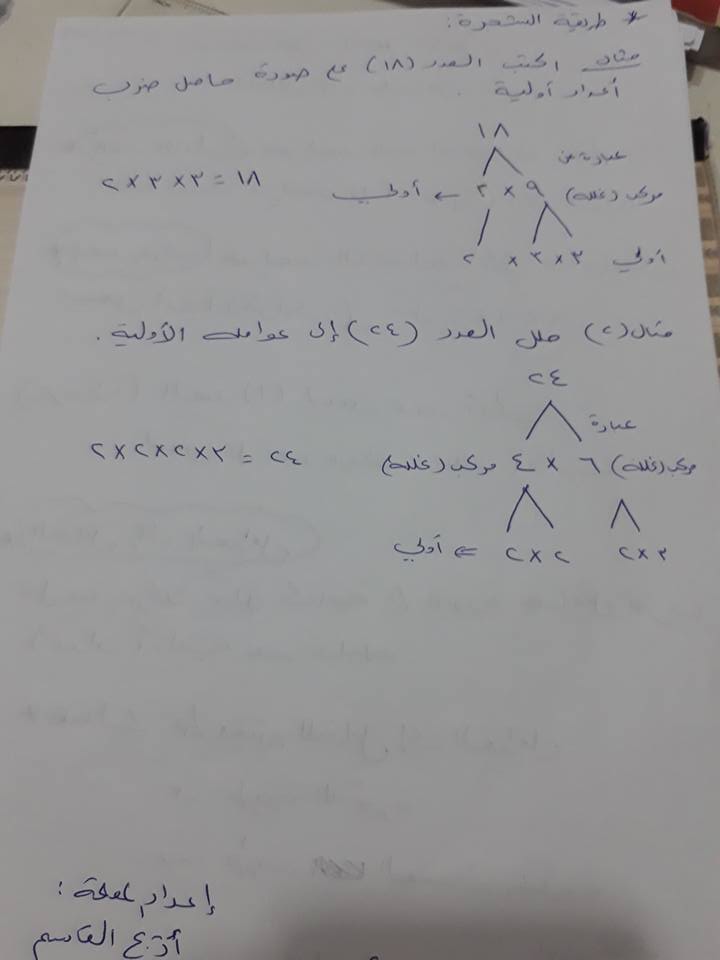 * طريقة الشجرة:
مثال اكتب العدد (١٨) على صورة حاصل ضرب
أعداد أولية.
١٨
عبارة عن
مركب (غلله) ٩ × ٢ ← أولي
١٨ = ٣ × ٣ × ٢
أولي ٣ × ٣ × ٢
مثال (٢) حلل العدد (٢٤) إلى عوامله الأولية.
٢٤
عبارة
مركب (غلله) ٦ × ٤ مركب (غلله)
٢٤ = ٣ × ٢ × ٢ × ٢
٣ × ٢ ٢ × ٢ ⇐ أولي
إعداد
القاسم